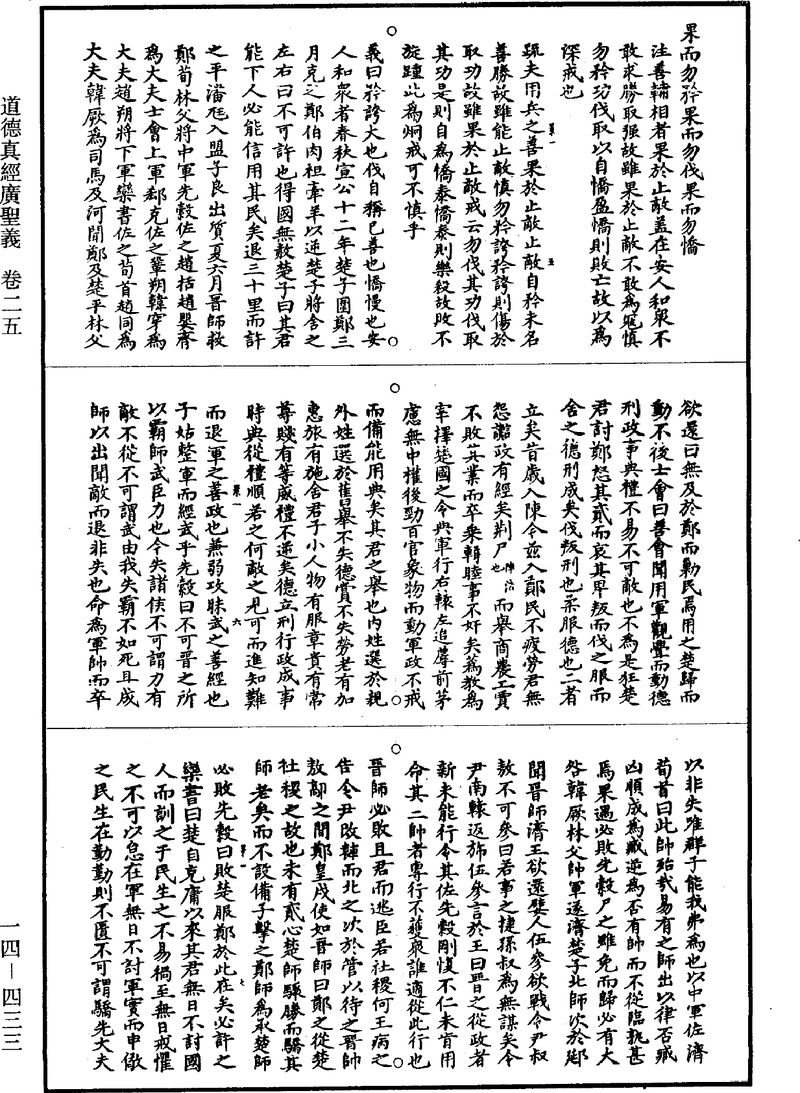 果而勿矜果而勿伐果而勿憍
注善輔相者果於止敵蓋在安人和衆不
敢求勝取强故雖果於止敵不敢為寇慎
勿矜功伐取以自憍盈憍則敗亡故以為
深戒也
疏夫用兵之善果於止敵止敵自矜未名
善勝故雖能止敵慎勿矜誇矜誇則傷於
取功故雖果於止敵戒云勿伐其功伐取
其功是則自為憍泰憍泰則樂殺故敗不
旋踵此為炯戒可不慎乎
義曰矜誇大也伐自稱已善也憍慢也安
人和衆者春秋宣公十二年楚子圍鄭三
月克之鄭伯肉袒牽羊以逆楚子將舍之
左右曰不可許也得國無赦楚子曰其君
能下人必能信用其民矣退三十里而許
之平潘尫入盟子良出質夏六月晉師救
鄭荀林父將中軍先縠佐之趙括趙嬰齊
為大夫士會上軍郄克佐之鞏朔韓穿為
大夫趙朔將下軍欒書佐之荀首趙同為
大夫韓厥為司馬及河聞鄭及楚平林父
欲還曰無及於鄭而勦民焉用之楚歸而
動不後士會曰善會聞用軍觀舋而動德
刑政事典禮不易不可敵也不為是狂楚
君討鄭怒其貳而哀其卑叛而伐之服而
舍之德刑成矣伐叛刑也柔服德也二者
立矣昔歲入陳今茲入鄭民不疲勞君無
怨讟政有經矣荆尸陣法也而舉商農工賈
不敗其業而卒乘輯睦事不奸矣蒍敖為
宰擇楚國之令典軍行右轅左追蓐前茅
慮無中權後勁百官象物而動軍政不戒
而備能用典矣其君之舉也內姓選於親
外姓選於舊舉不失德賞不失勞老有加
惠旅有施舍君子小人物有服章貴有常
尊賤有等威禮不逆矣德立刑行政成事
時典從禮順若之何敵之見可而進知難
而退軍之善政也兼弱攻昧武之善經也
子姑整軍而經武乎先縠曰不可晉之所
以霸師武臣力也今失諸侯不可謂力有
敵不從不可謂武由我失霸不如死且成
師以出聞敵而退非夫也命為軍帥而卒
以非夫唯群子能我弗為也以中軍佐濟
荀首曰此帥殆哉易有之師出以律否臧
凶順成為臧逆為否有帥而不從臨孰甚
焉果遇必敗先縠尸之雖免而歸必有大
咎韓厥林父帥軍遂濟楚子北師次於郔
聞晉師濟王欲還嬖人伍參欲戰令尹叔
敖不可參曰若事之捷孫叔為無謀矣令
尹南轅返旆伍參言於王曰晉之從政者
新未能行令其佐先縠剛愎不仁未肯用
命其三帥者專行不獲衆誰適從此行也
晉師必敗且君而逃臣若社稷何王病之
告令尹改轅而北之次於管以待之晉帥
敖鄗之間鄭皇戌使如晉師曰鄭之從楚
社稷之故也未有貳心楚師驟勝而驕其
師老矣而不設備子擊之鄭師為承楚師
必敗先縠曰敗楚服鄭於此在矣必許之
欒書曰楚自克庸以來其君無日不討國
人而訓之于民生之不易禍至無日戒懼
之不可以怠在軍無日不討軍實而申儆
之民生在勤勤則不匱不可謂驕先大夫
道德真經廣聖義 卷二五
一四—四三三